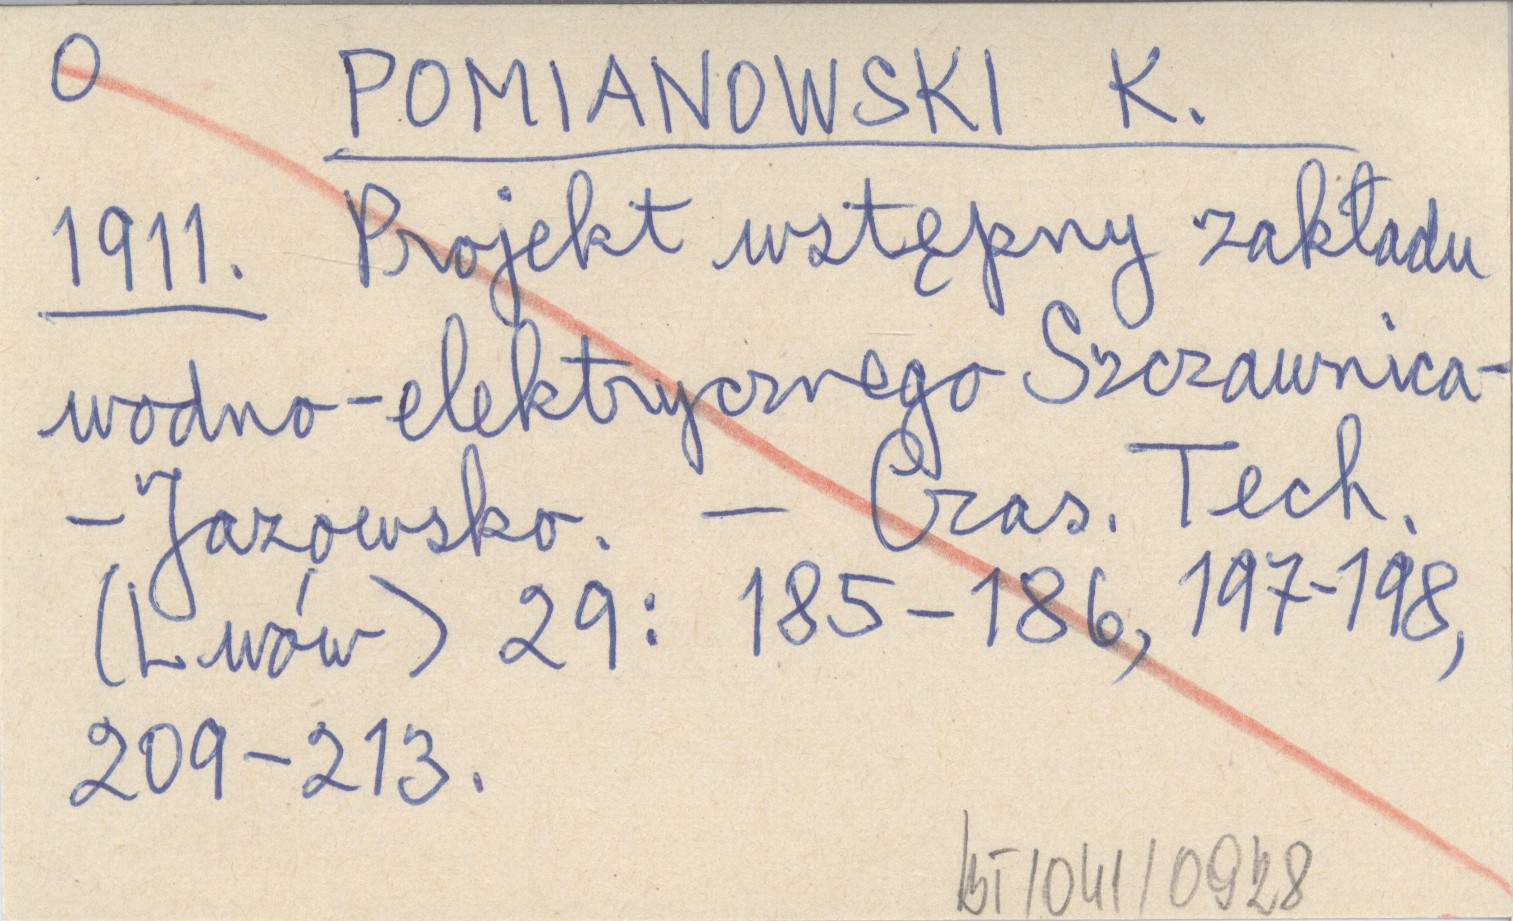 O POMIANOWSKI K.
1911. Projekt wstępny zakładu
wodno-elektrycznego Szczawnica-
-Jazowsko. — Czas. Tech.
(Lwów) 29: 185-186, 197-198,
209-213.
/041/0928